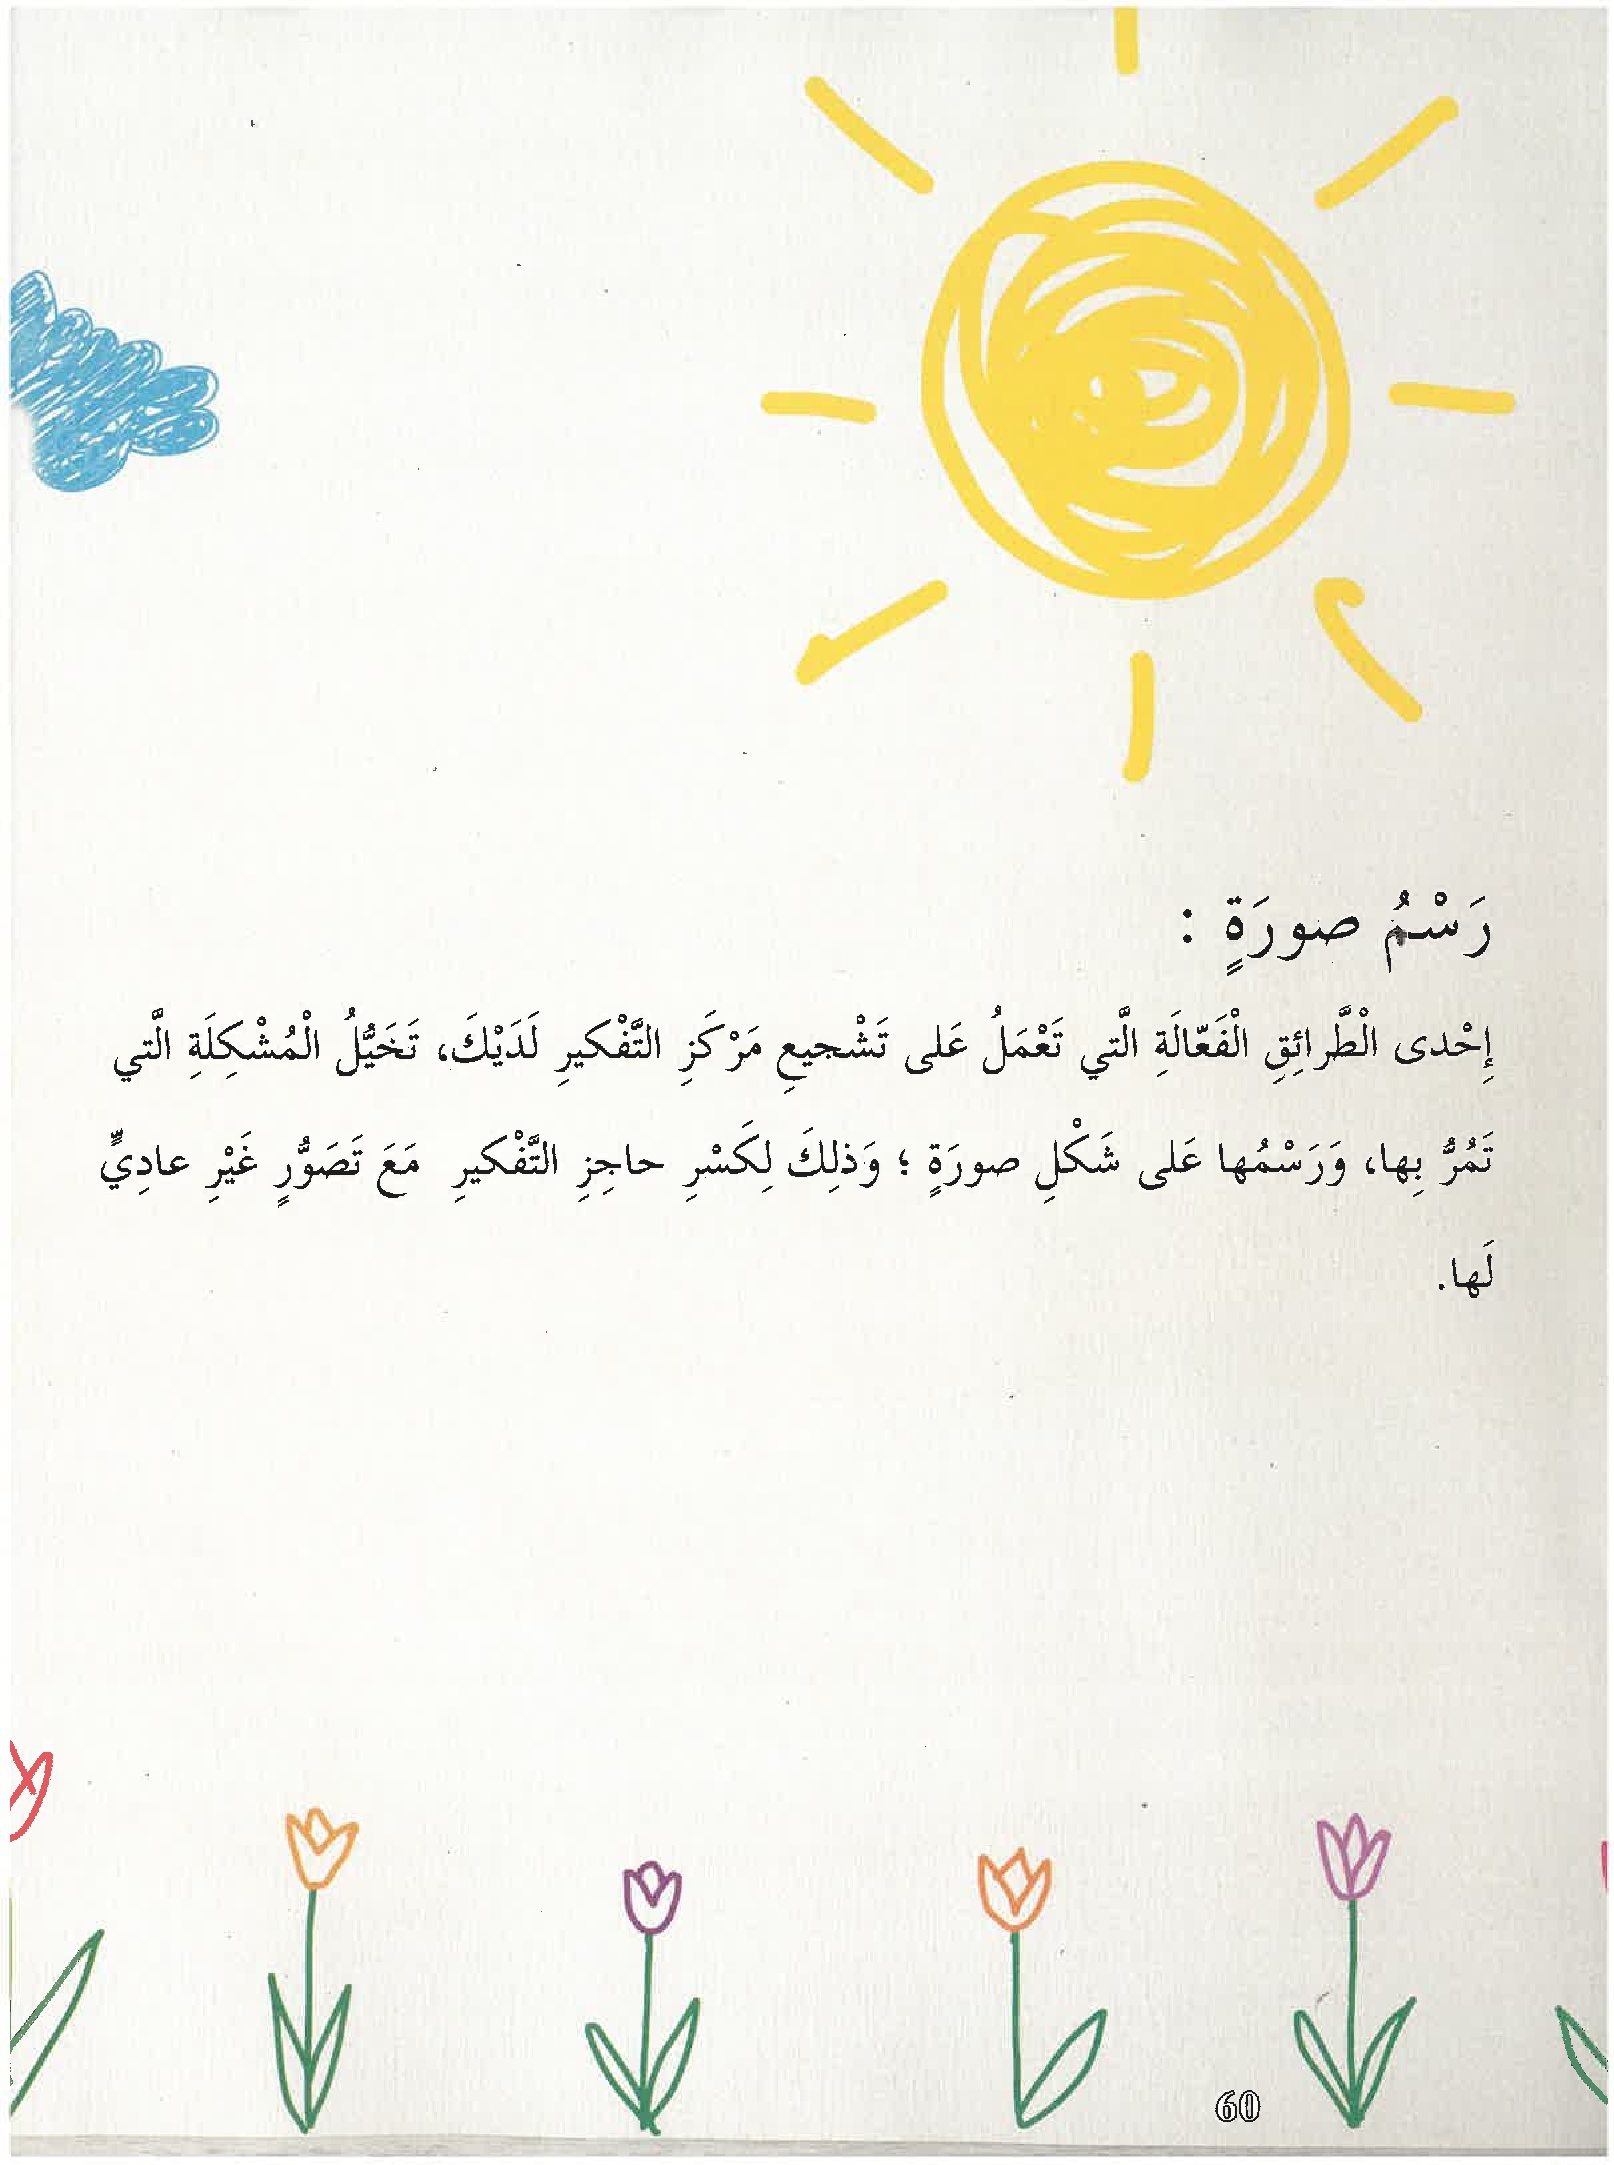 رَسْمُ صورَةٍ :
إِحْدى الْطَّرائِقِ الْفَعّالَةِ الَّتي تَعْمَلُ عَلى تَشْجيعِ مَرْكَزِ التَّفْكيرِ لَدَيْكَ، تَخَيُّلُ الْمُشْكِلَةِ الَّتي
تَمُرُّ بِها، وَرَسْمُها عَلى شَكْلِ صورَةٍ ؛ وَذلِكَ لِكَسْرِ حاجِزِ التَّفْكيرِ مَعَ تَصَوُّرٍ غَيْرِ عادِيٍّ
لَها.
60